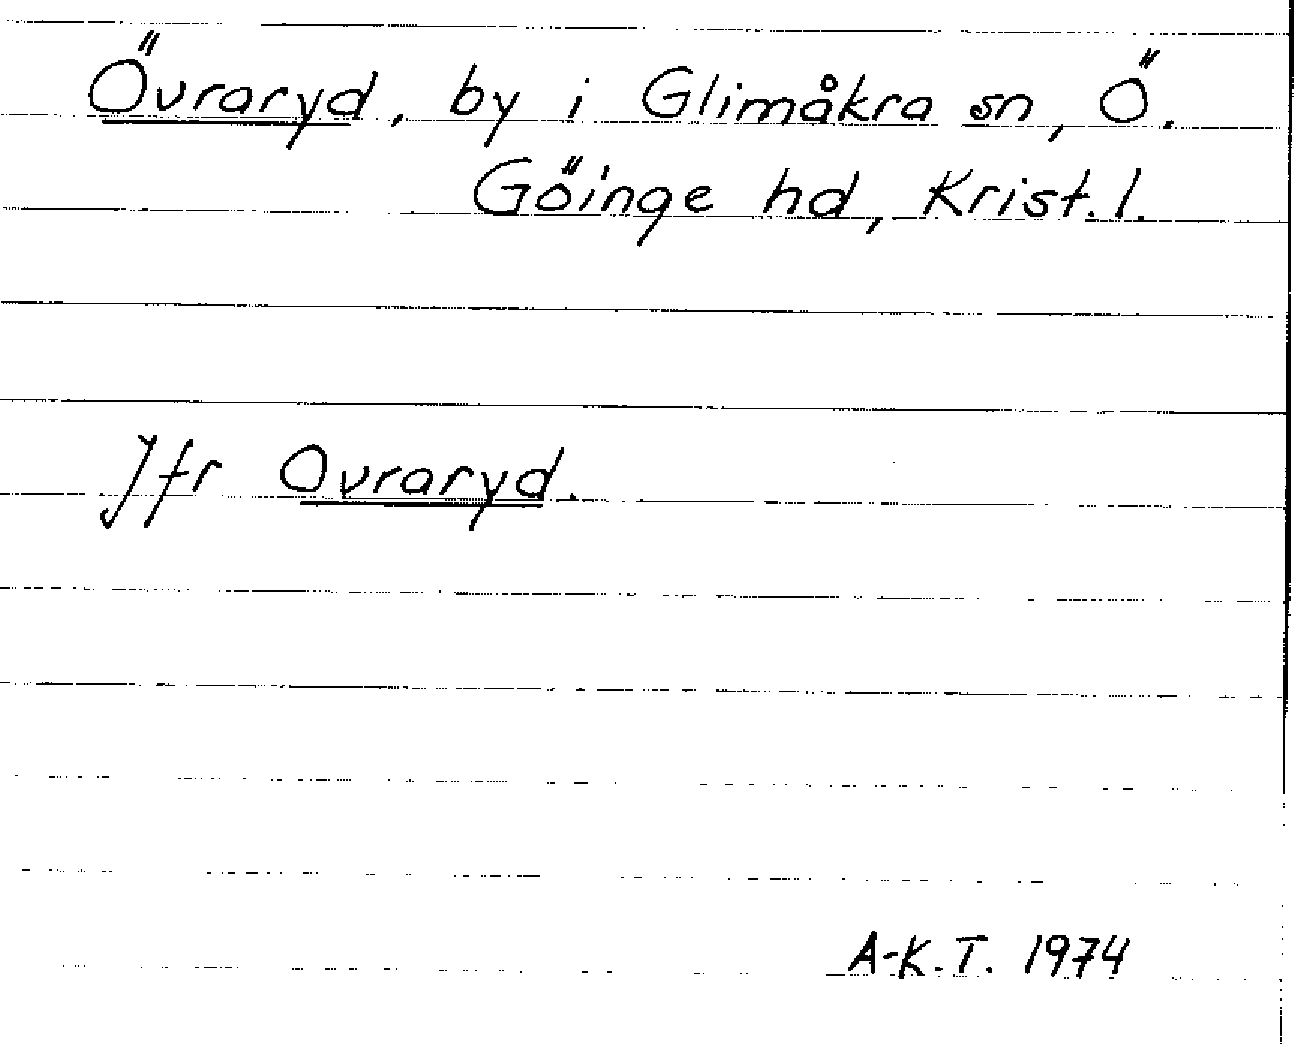 Övraryd, by i Glimåkra sn, Ö.
Göinge hd, Krist. l.
Jfr Ovraryd.
A-K.T. 1974